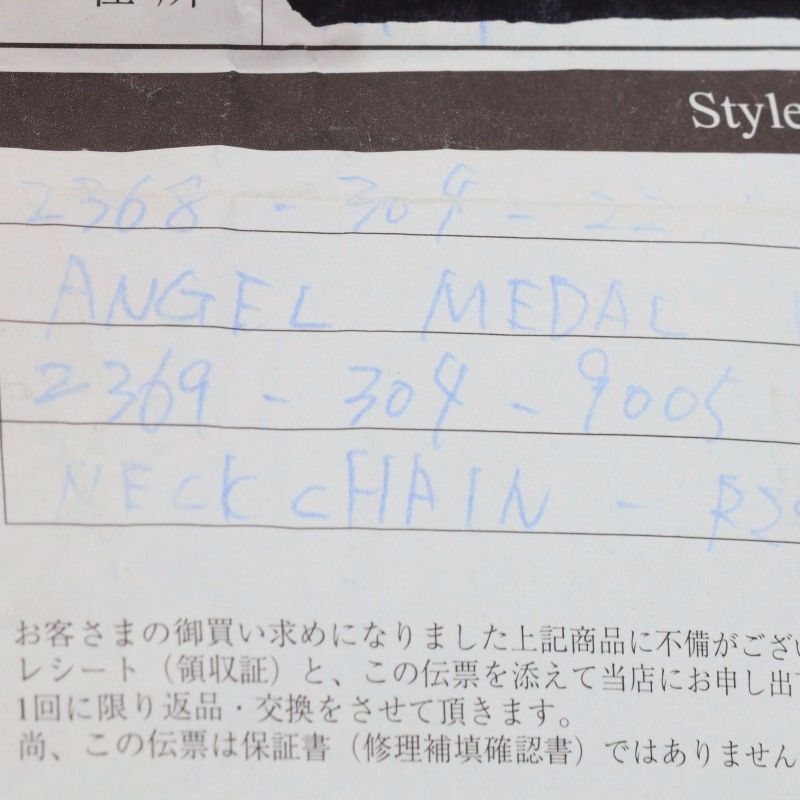 住所
Style
2368 - 304 - 22
ANGEL MEDAL
2369 - 304 - 9005
NECK CHAIN -
お客さまの御買い求めになりました上記商品に不備がござい
レシート（領収証）と、この伝票を添えて当店にお申し出
1回に限り返品・交換をさせて頂きます。
尚、この伝票は保証書（修理補填確認書）ではありません